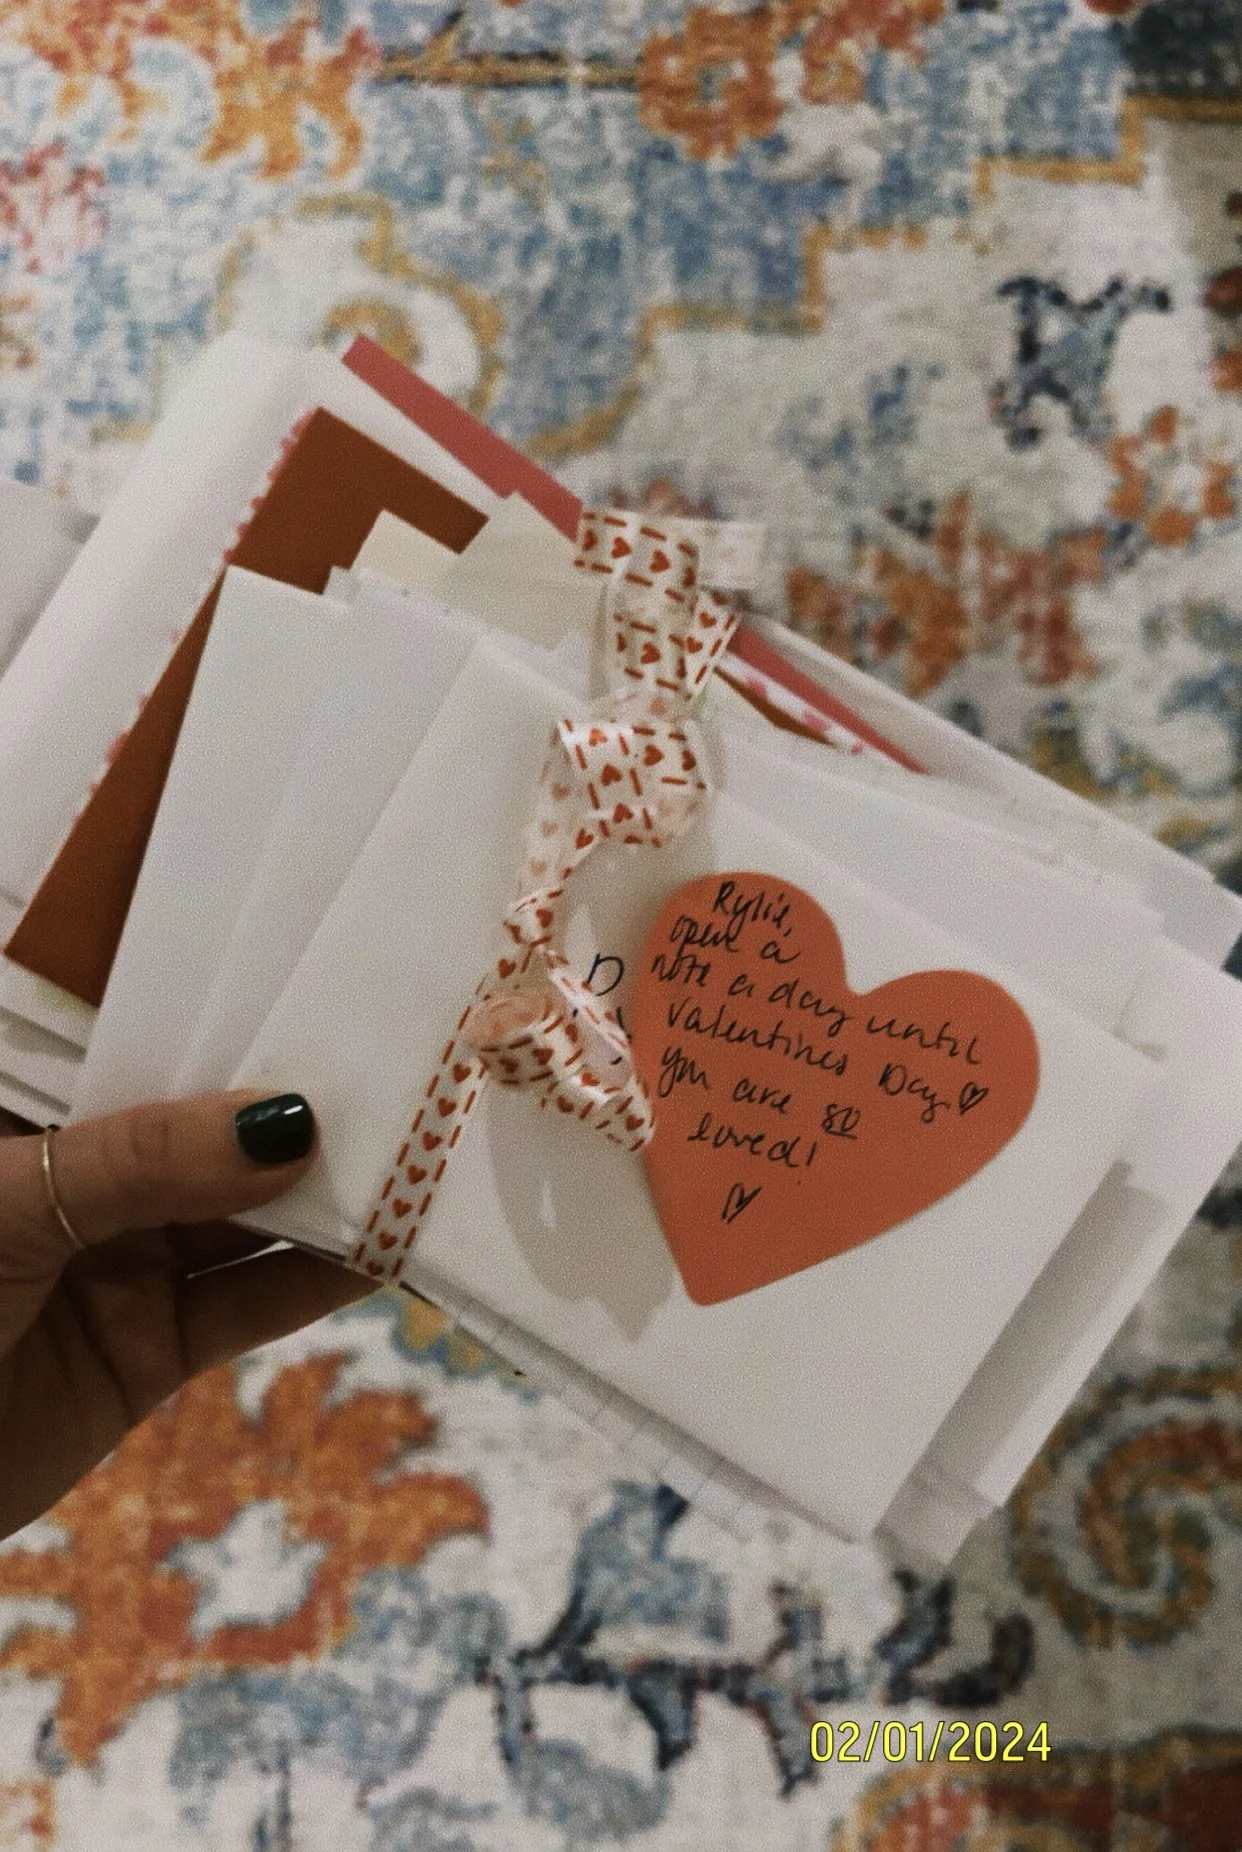 Rylie,
open a
note a day until
Valentines Day ♡
you are so
loved!
♡
D
02/01/2024